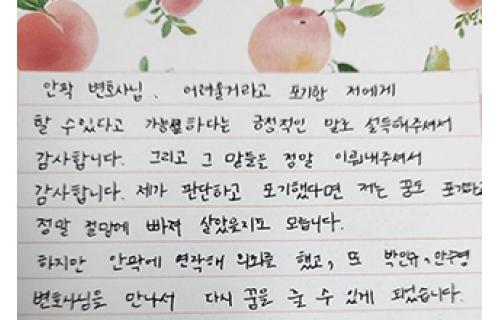 안팍 변호사님, 어려울거라고 포기한 저에게
할 수있다고 가능하다는 긍정적인 말로 설득해주셔서
감사합니다. 그리고 그 말들을 정말 이뤄내주셔서
감사합니다. 제가 판단하고 포기했다면 저는 꿈도 포기하고
정말 절망에 빠져 살았을지도 모릅니다.
하지만 안팍에 연락해 의뢰를 했고, 또 박인규, 안주영
변호사님을 만나서 다시 꿈을 꿀 수 있게 되었습니다.